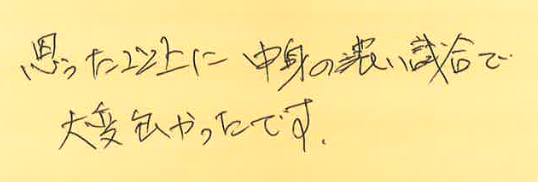 思った以上に 中身の濃い試合で
大変良かったです.